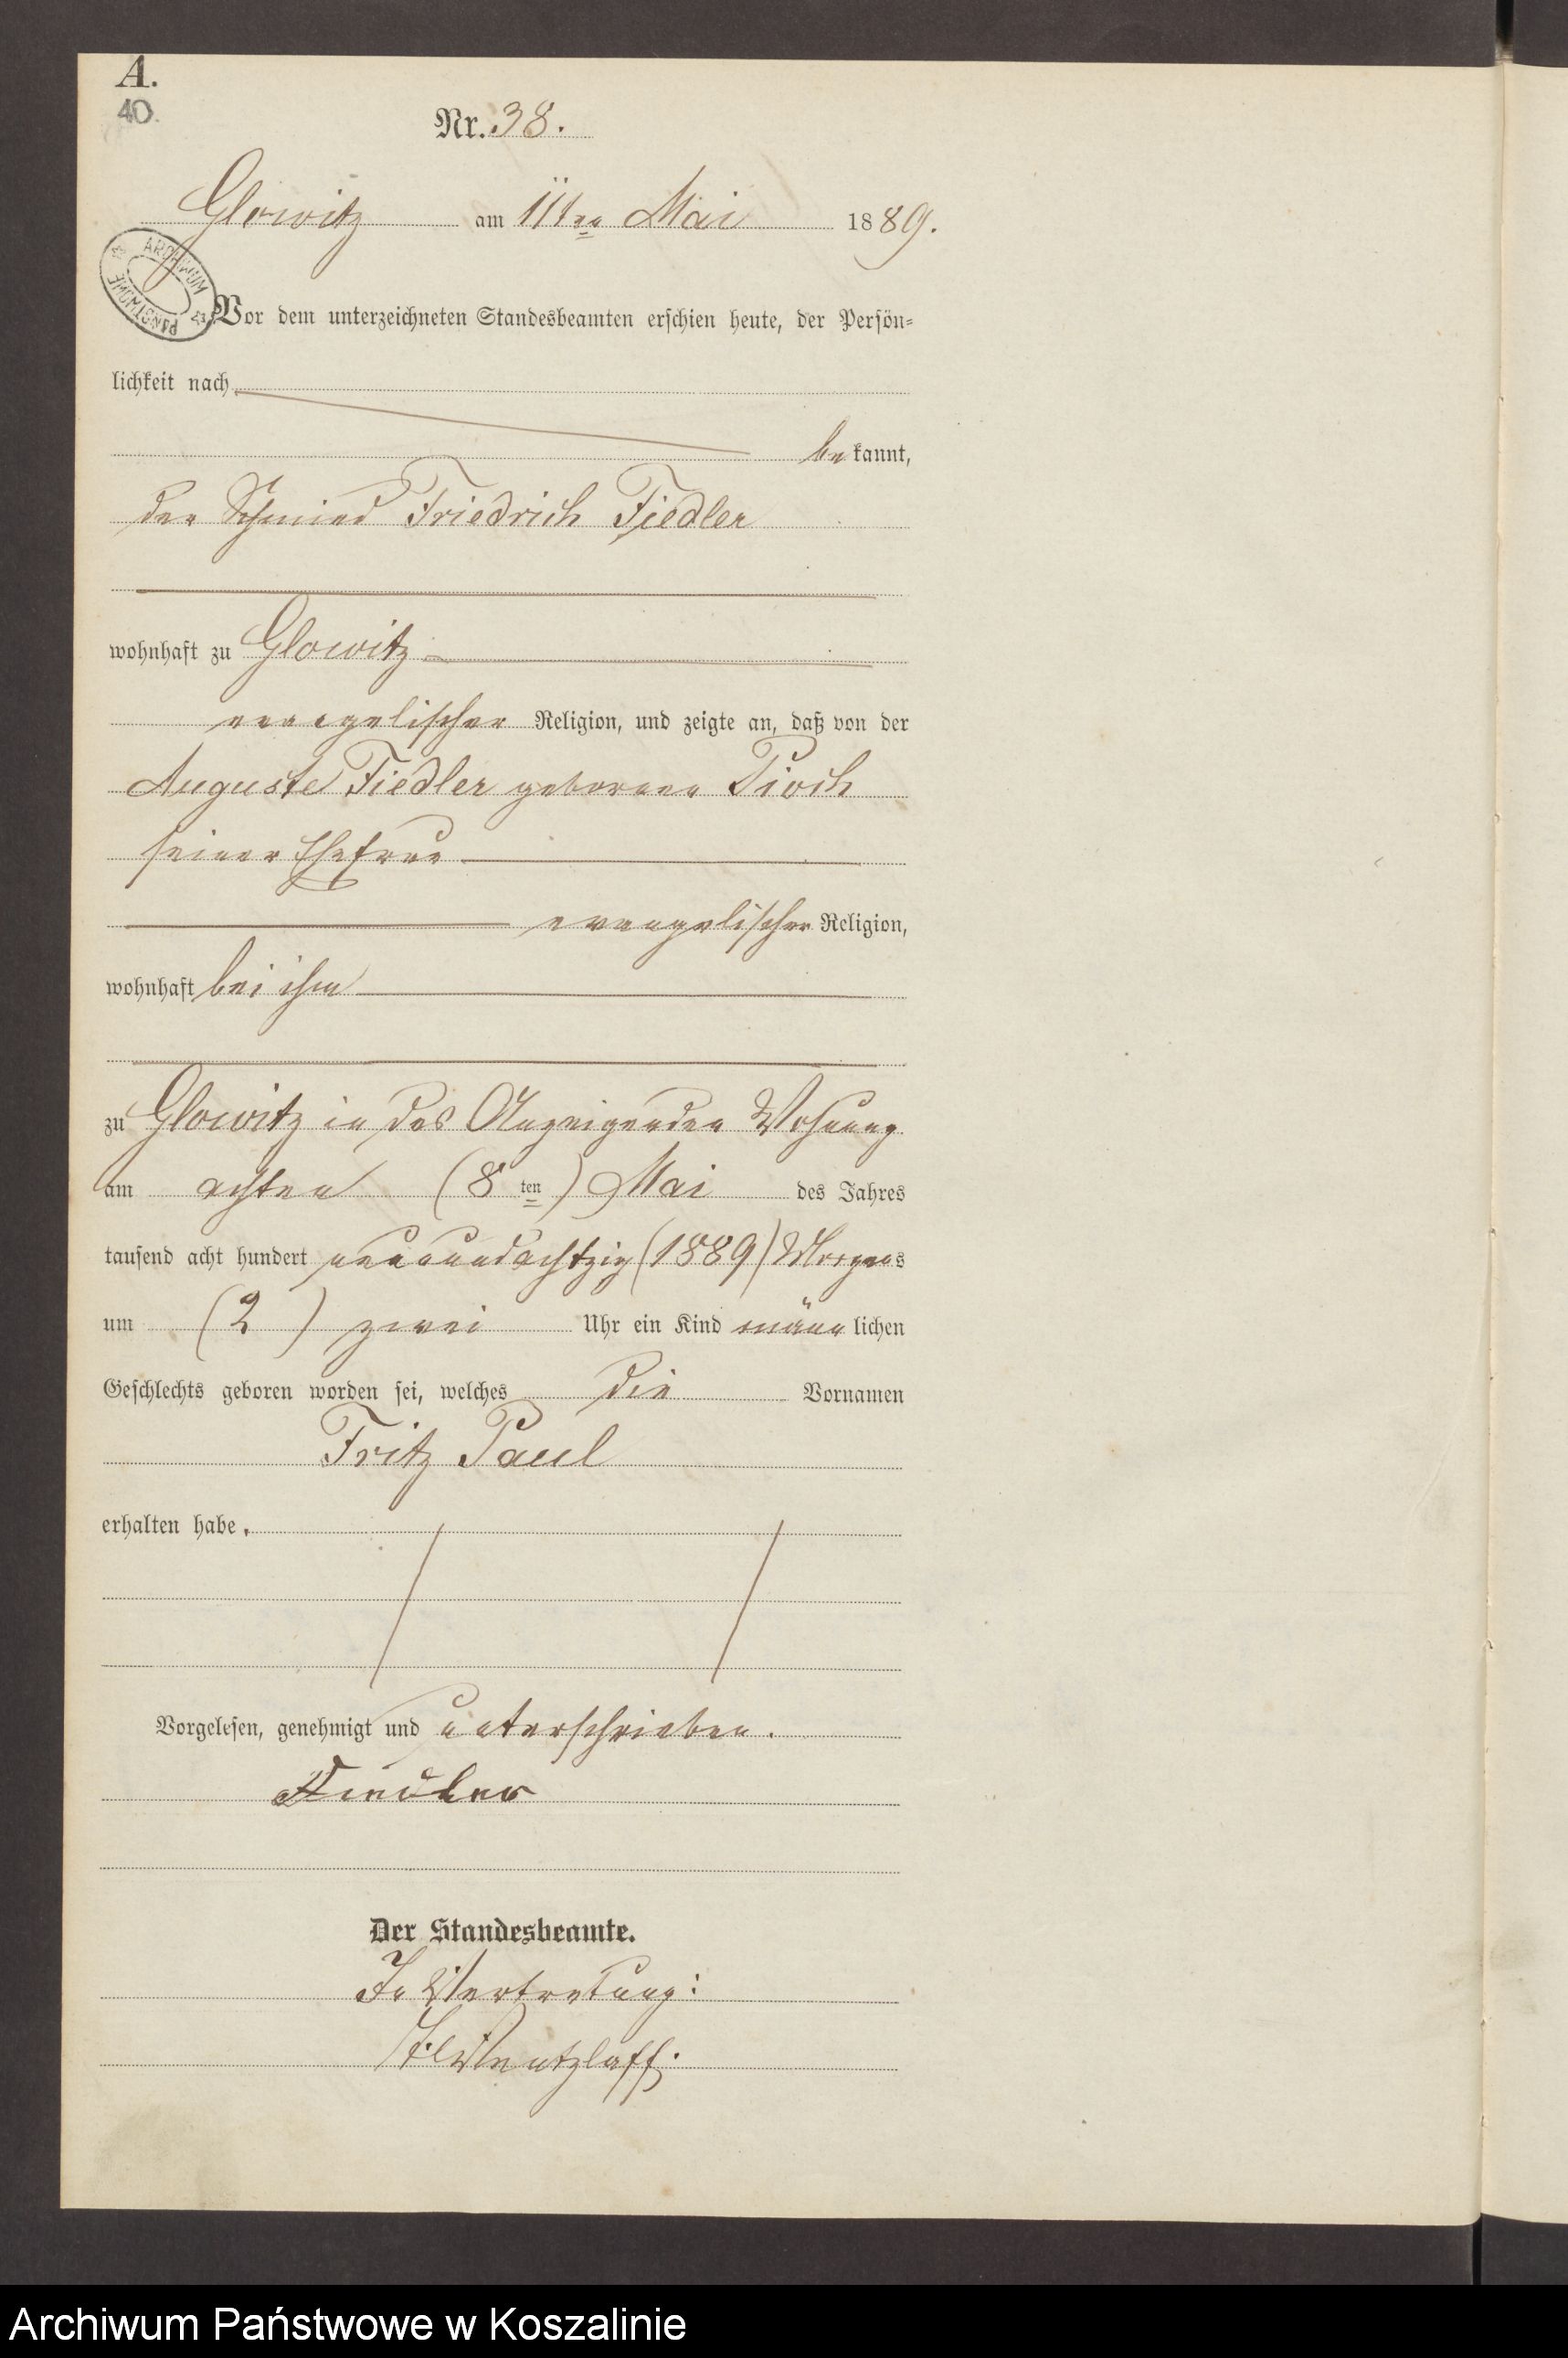 A.
40.
Nr. 38.
Glowitz am 11ten Mai 1889.
ARCHIWUM PAŃSTWOWE
Vor dem unterzeichneten Standesbeamten erschien heute, der Persön=
lichkeit nach
bekannt,
der Schmied Friedrich Fiedler
wohnhaft zu Glowitz
evangelischer Religion, und zeigte an, daß von der
Auguste Fiedler geborene Pioch
seiner Ehefrau
evangelischer Religion,
wohnhaft bei ihm
zu Glowitz in des Anzeigenden Wohnung
am achten (8ten) Mai des Jahres
tausend acht hundert neunundachtzig (1889) Morgens
um (2) zwei Uhr ein Kind männlichen
Geschlechts geboren worden sei, welches die Vornamen
Fritz Paul
erhalten habe.
Vorgelesen, genehmigt und unterschrieben.
Fiedler
Der Standesbeamte.
In Vertretung:
Wentzlaff.
Archiwum Państwowe w Koszalinie